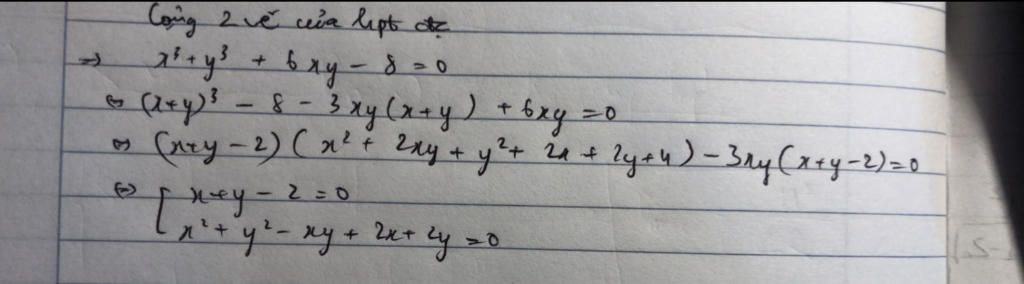 Cộng 2 vế của hpt
=> x³ + y³ + 6xy - 8 = 0
<=> (x+y)³ - 8 - 3xy(x+y) + 6xy = 0
<=> (x+y-2)(x² + 2xy + y² + 2x + 2y + 4) - 3xy(x+y-2) = 0
<=> [ x+y - 2 = 0
x² + y² - xy + 2x + 2y = 0